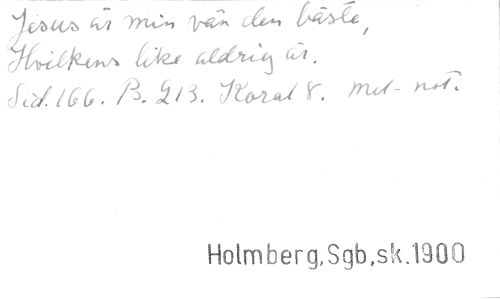 Jesus är min vän den bäste,
Hvilkens like aldrig är.
Sid. 166. B. 213. Koral 8. met- not.
Holmberg,Sgb,sk.1900